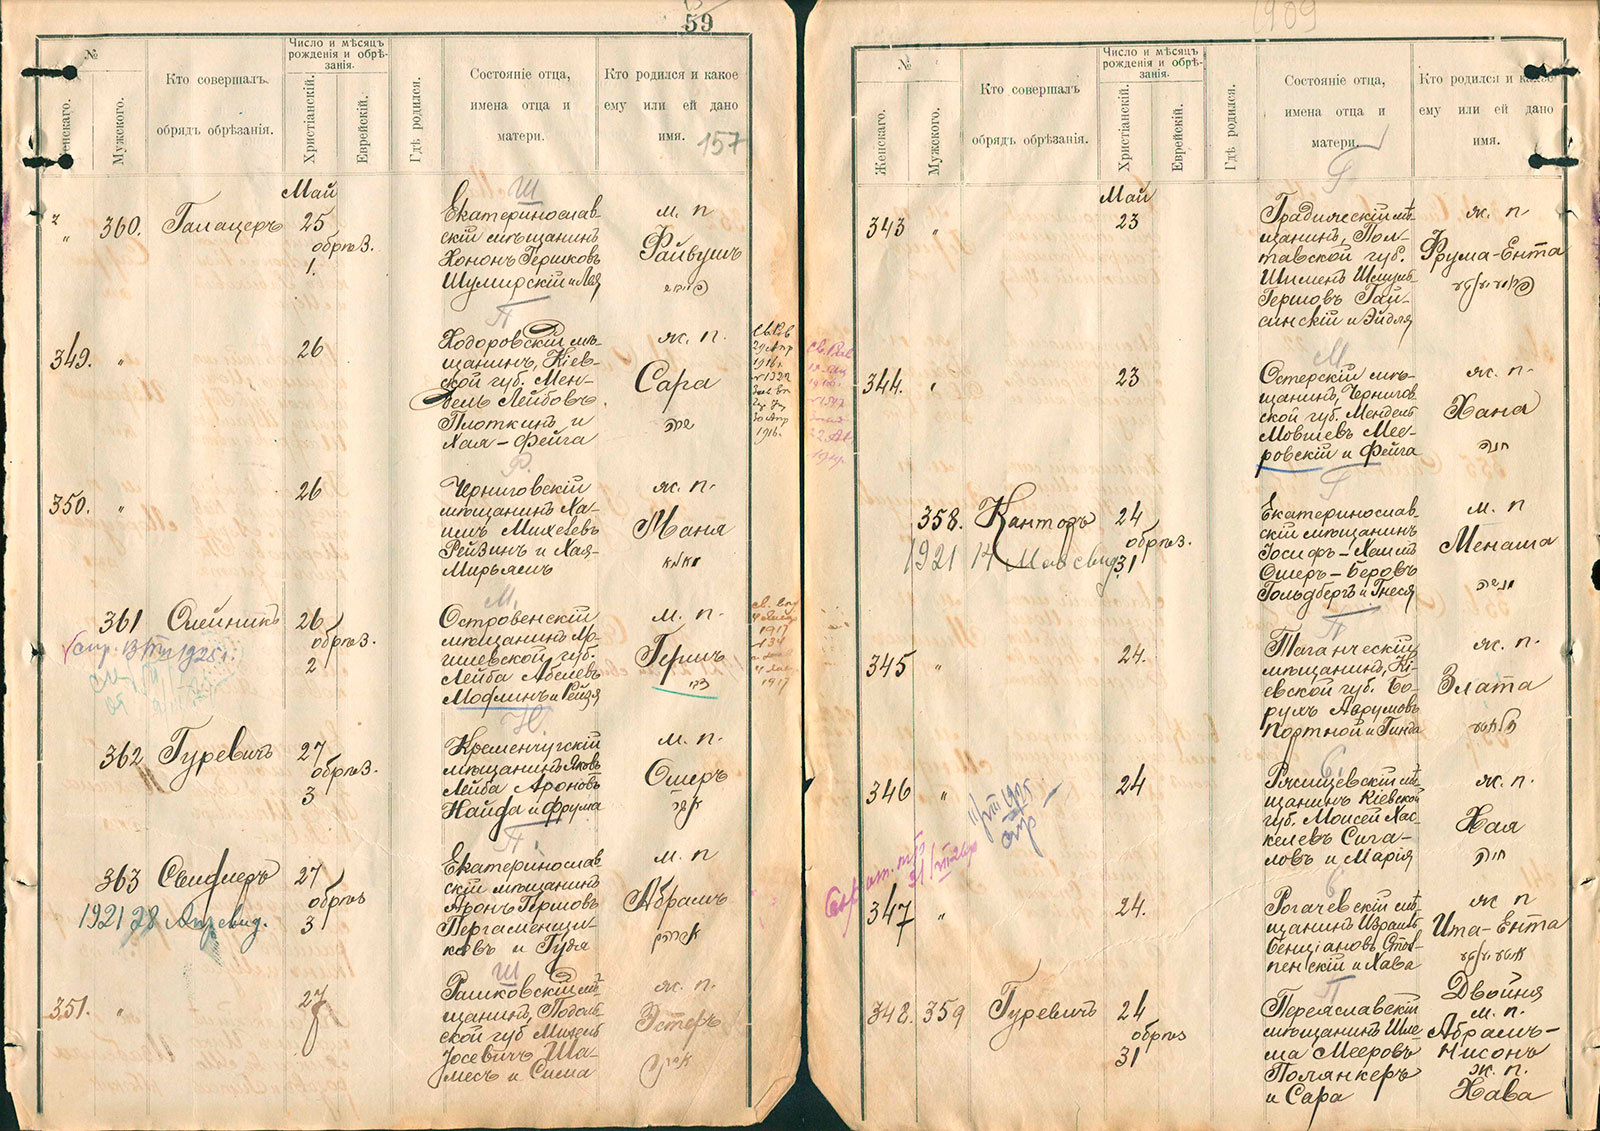 59
№
Женскаго.
Мужского.
Кто совершалъ
обрядъ обрѣзанія.
Число и мѣсяцъ
рожденія и обрѣ-
занія.
Христіанскій.
Еврейскій.
Гдѣ родился.
Состояніе отца,
имена отца и
матери.
Кто родился и какое
ему или ей дано
имя.
157
Май
Ш
360.
Галацеръ
25
обрѣз.
1.
Екатеринослав-
скій мѣщанинъ
Хононъ Гершковъ
Шумирскій и Лея
м. п
Файвушъ
П
349.
"
26
Ходоровскій мѣ-
щанинъ, Кіев-
ской губ. Мен-
дель Лейбовъ
Плоткинъ и
Хая-Фейга
ж. п.
Сара
שרה
Р.
350.
"
26
Черниговскій
мѣщанинъ Ха-
имъ Михелевъ
Рейзинъ и Хая-
Мирьямъ
ж. п.
Маня
מאניא
М.
361
Олейникъ
26
обрѣз.
2
Островенскій
мѣщанинъ Мо-
гилевской губ.
Лейба Абелевъ
Мофлинъ и Рейзя
м. п.
Гершъ
הירש
Н.
362
Гуревичъ
27
обрѣз.
3
Кременчугскій
мѣщанинъ Яковъ
Лейба Ароновъ
Найфа и Фрума
м. п.
Ошеръ
אשר
П.
363
Свифлеръ
1921 28 Апр свид.
27
обрѣз
3
Екатеринослав
скій мѣщанинъ
Аронъ Гершовъ
Пергаменщи-
ковъ и Гудя
м. п
Абрамъ
אברהם
Ш
351.
"
27
Рашковскій мѣ-
щанинъ, Подоль-
ской губ Михель
Іосевичъ Ша-
месъ и Сима
ж. п.
Эстеръ
אסתר
1909
№
Женскаго.
Мужского.
Кто совершалъ
обрядъ обрѣзанія.
Число и мѣсяцъ
рожденія и обрѣ-
занія.
Христіанскій.
Еврейскій.
Гдѣ родился.
Состояніе отца,
имена отца и
матери.
Кто родился и какое
ему или ей дано
имя.
Май
Г
343
"
23
Градижскій мѣ-
щанинъ, Пол-
тавской губ.
Шименъ Шмуль-
Гершовъ Гай-
синскій и Эйдля
ж. п
Фрума-Ента
М
344.
"
23
Остерскій мѣ-
щанинъ, Чернигов
ской губ. Мендель
Мовшевъ Мее-
ровскій и Фейга
ж. п.
Хана
חנה
Г
358.
Канторъ
1921 14 Мая свид.
24
обрѣз.
31
Екатеринослав-
скій мѣщанинъ
Іосифъ-Хаимъ
Ошеръ-Беровъ
Гольдбергъ и Гнеся
м. п
Менаша
מנשה
П
345
"
24.
Таганческій
мѣщанинъ, Кі-
евской губ. Бо-
рухъ Аврумовъ
Портной и Гинда
ж. п.
Злата
זלאטע
С.
346
"
24
Ряснщевскій мѣ-
щанинъ Кіевской
губ. Моисей Хас-
келевъ Сига-
ловъ и Марія
ж. п.
Хая
חיה
С
347
"
24.
Рогачевскій мѣ-
щанинъ Израиль
Бенціановъ Стол-
пенскій и Хава
ж п
Ита-Ента
איטע יענטע
П
348.
359
Гуревичъ
24
обрѣз
31
Переяславскій
мѣщанинъ Шле-
ма Мееровъ
Полянкеръ
и Сара
Двойня
м. п.
Абрамъ-
Нисонъ
ж. п.
Хава